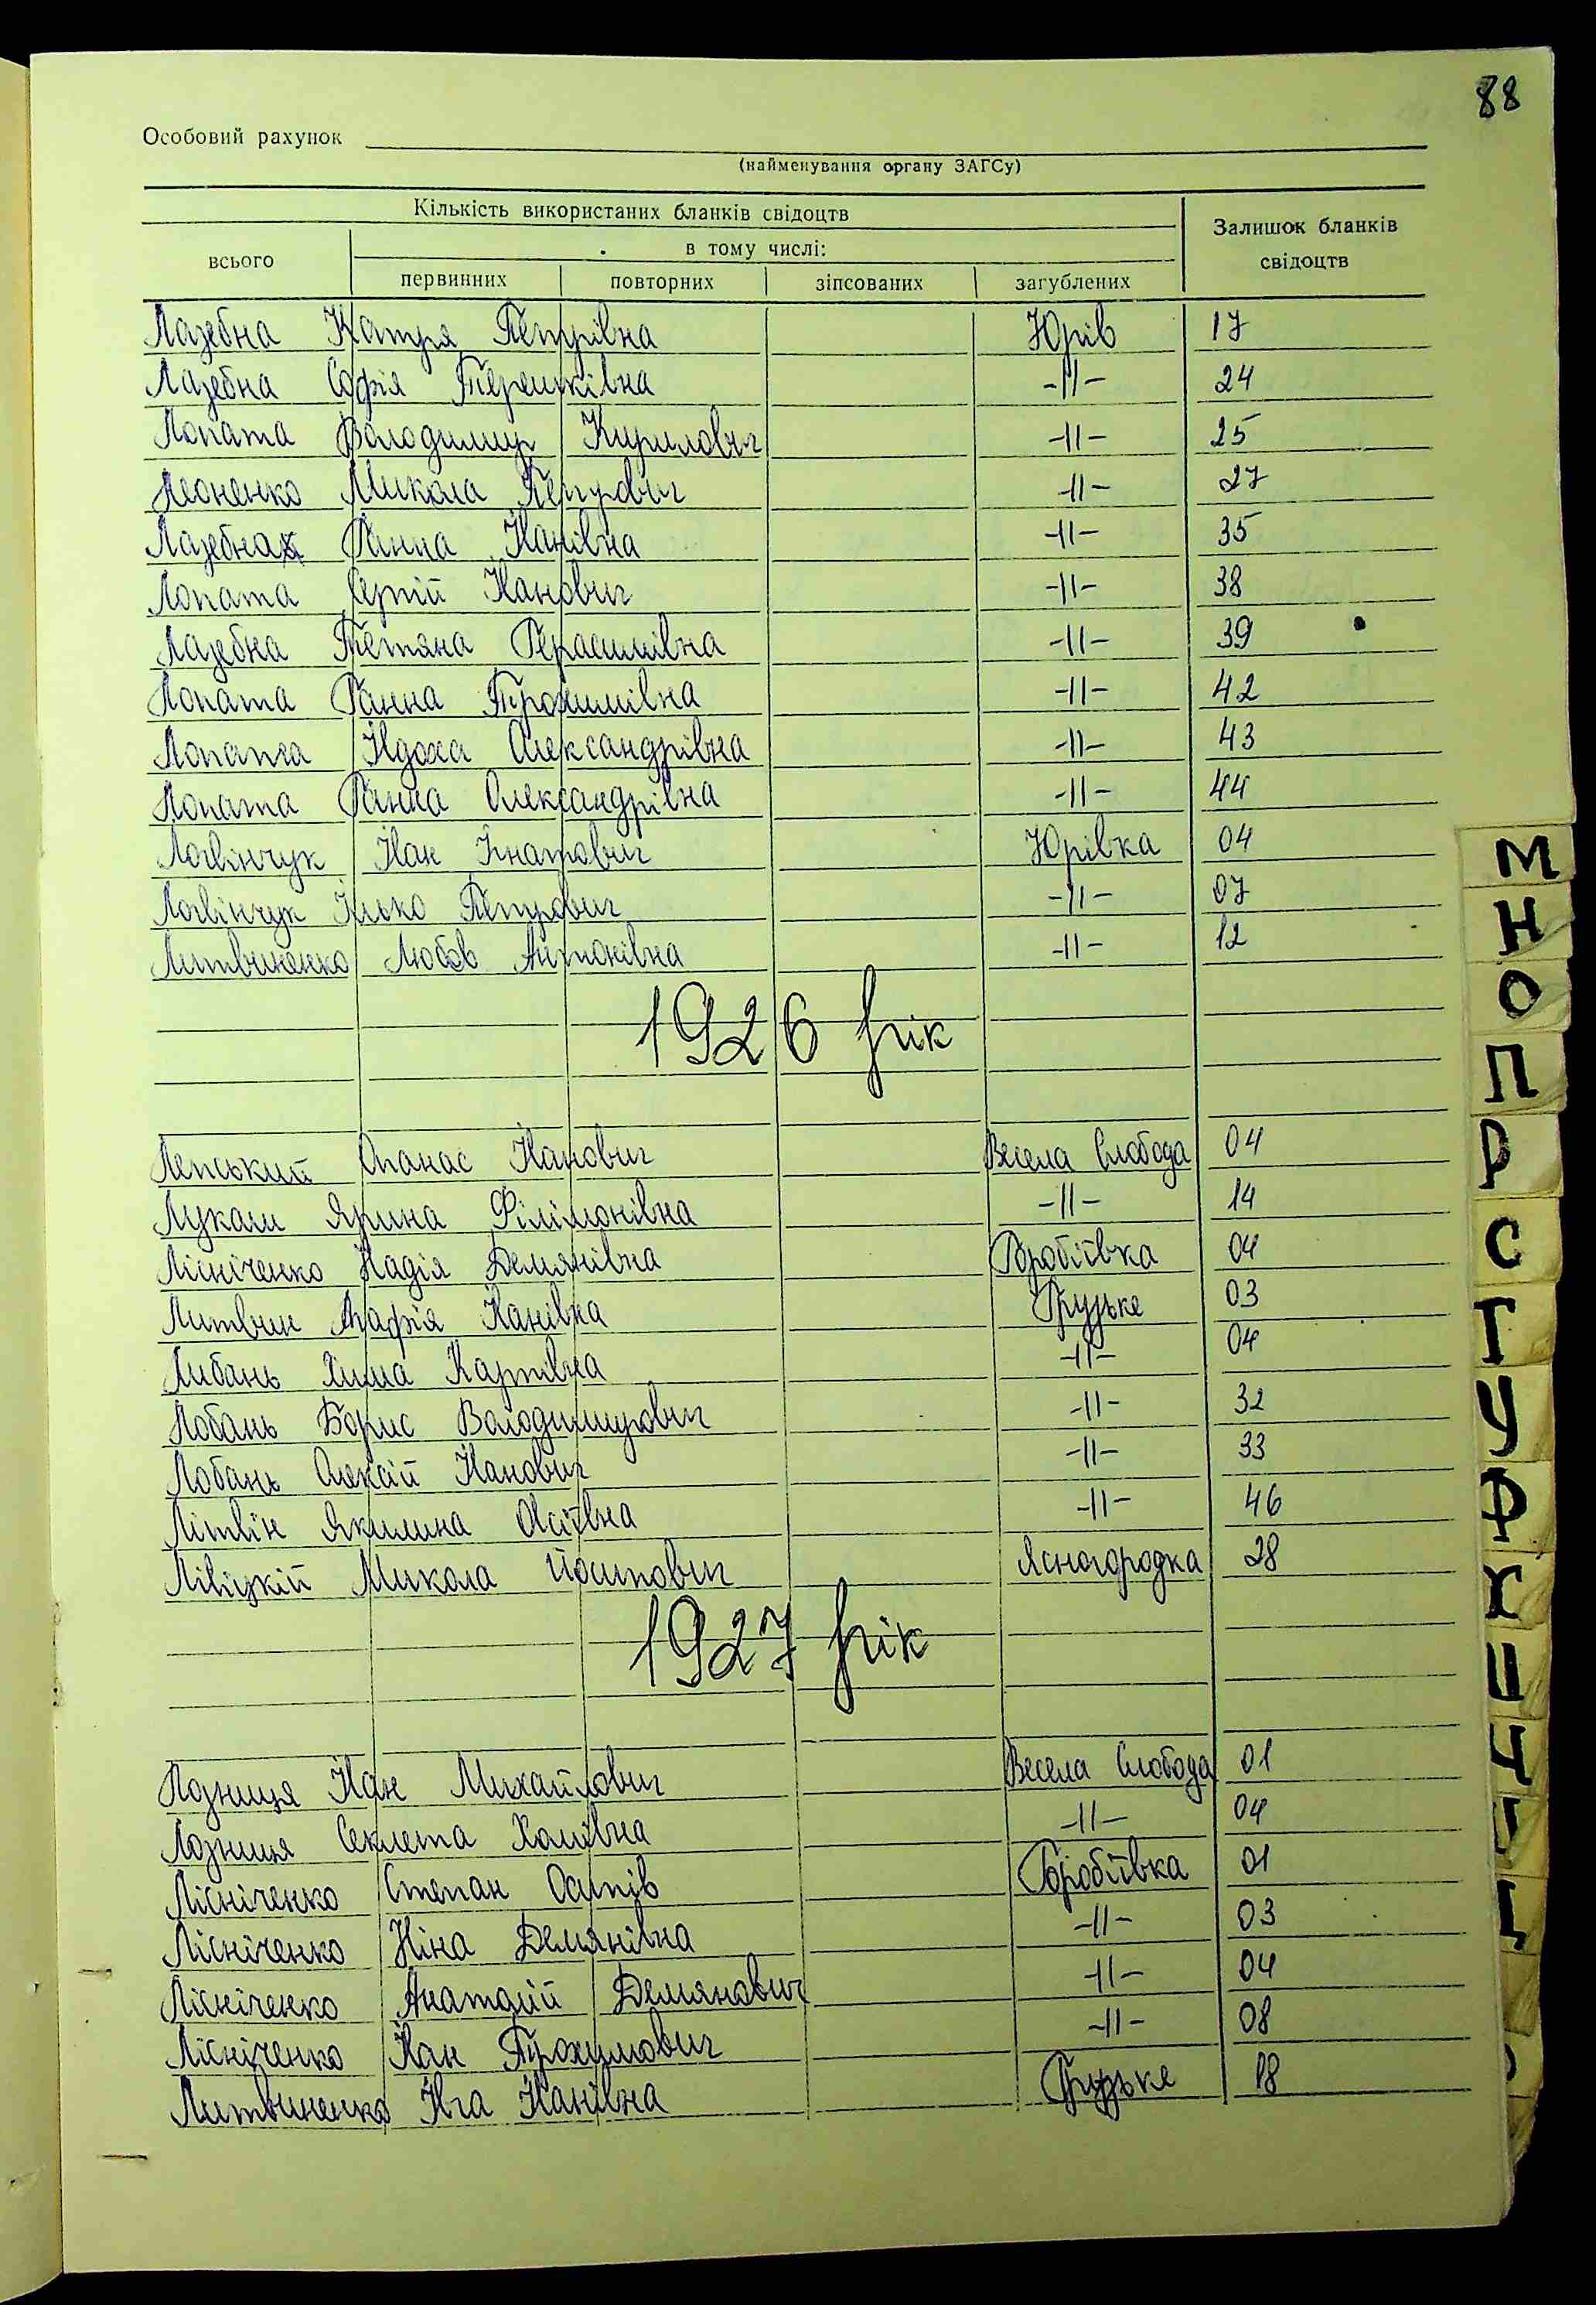 88
Особовий рахунок
(найменування органу ЗАГСу)
Кількість використаних бланків свідоцтв
Залишок бланків свідоцтв
всього
в тому числі:
первинних повторних зіпсованих загублених
Лазебна Катря Петрівна Юрів 17
Лазебна Софія Терешківна -11- 24
Лопата Володимир Кирилович -11- 25
Леоненко Микола Петрович -11- 27
Лазебна Ганна Іванівна -11- 35
Лопата Сергій Іванович -11- 38
Лазебна Тетяна Герасимівна -11- 39
Лопата Ганна Трохимівна -11- 42
Лопата Явдоха Олександрівна -11- 43
Лопата Ганна Олександрівна -11- 44
Логвінчук Іван Ігнатович Юрівка 04
Логвінчук Ілько Петрович -11- 07
Литвиненко Любов Антонівна -11- 12
1926 рік
Лепський Опанас Іванович Весела Слобода 04
Лукаш Ярина Філімонівна -11- 14
Лісніченко Надія Демянівна Горобіївка 04
Литвин Агафія Іванівна Грузьке 03
Либань Хима Карпівна -11- 04
Лобань Борис Володимирович -11- 32
Лобань Олексій Іванович -11- 33
Літвін Якилина Овсіївна -11- 46
Лівіцкій Микола Йосипович Ясногородка 28
1927 рік
Лозниця Іван Михайлович Весела Слобода 01
Лозниця Секлета Хомівна -11- 04
Лісніченко Степан Осипів Горобіївка 01
Лісніченко Ніна Демянівна -11- 03
Лісніченко Анатолій Демянович -11- 04
Лісніченко Іван Трохимович -11- 08
Литвиненко Івга Іванівна Грузьке 18
М
Н
О
П
Р
С
Т
У
Ф
Х
Ц
Ч